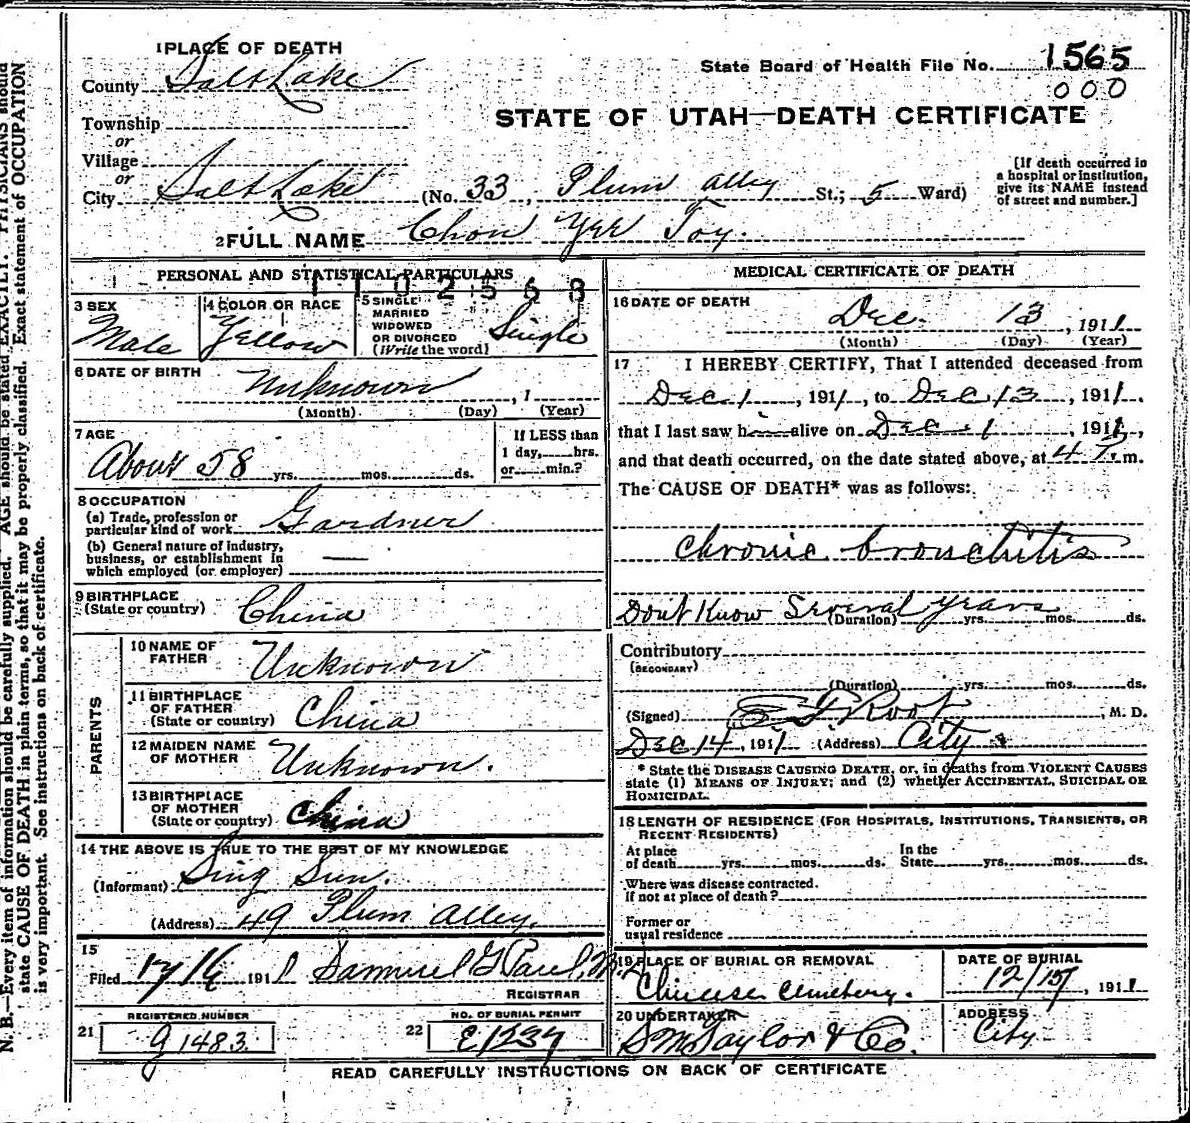 1 PLACE OF DEATH
County Salt Lake
State Board of Health File No. 1565
000
Township
or
Village
or
City Salt Lake (No. 33, Plum alley St.; 5 Ward)
STATE OF UTAH—DEATH CERTIFICATE
[If death occurred in a hospital or institution, give its NAME instead of street and number.]
2 FULL NAME Chon Yee Toy.
PERSONAL AND STATISTICAL PARTICULARS
1102568
3 SEX
Male
4 COLOR OR RACE
Yellow
5 SINGLE
MARRIED
WIDOWED
OR DIVORCED
(Write the word)
Single
6 DATE OF BIRTH
Unknown, 1
(Month) (Day) (Year)
7 AGE
About 58 yrs. mos. ds.
If LESS than
1 day, hrs.
or min.?
8 OCCUPATION
(a) Trade, profession or
particular kind of work Gardner
(b) General nature of industry,
business, or establishment in
which employed (or employer)
9 BIRTHPLACE
(State or country) China
PARENTS
10 NAME OF
FATHER Unknown
11 BIRTHPLACE
OF FATHER
(State or country) China
12 MAIDEN NAME
OF MOTHER Unknown.
13 BIRTHPLACE
OF MOTHER
(State or country) China
14 THE ABOVE IS TRUE TO THE BEST OF MY KNOWLEDGE
(Informant) Sing Sun.
(Address) 49 Plum Alley.
15
Filed 191 Samuel G Paul, M.D.
REGISTRAR
21 REGISTERED NUMBER
g 1483.
22 NO. OF BURIAL PERMIT
MEDICAL CERTIFICATE OF DEATH
16 DATE OF DEATH
Dec. 13, 1911
(Month) (Day) (Year)
17 I HEREBY CERTIFY, That I attended deceased from
Dec 1, 1911, to Dec 13, 1911.
that I last saw h alive on Dec. 1, 1911,
and that death occurred, on the date stated above, at 4 P. m.
The CAUSE OF DEATH* was as follows:
Chronic bronchitis
Don't Know Several years
(Duration) yrs. mos. ds.
Contributory
(SECONDARY)
(Duration) yrs. mos. ds.
(Signed) Root, M. D.
Dec 14, 1911 (Address) City
* State the DISEASE CAUSING DEATH, or, in deaths from VIOLENT CAUSES
state (1) MEANS OF INJURY; and (2) whether ACCIDENTAL, SUICIDAL OR
HOMICIDAL.
18 LENGTH OF RESIDENCE (FOR HOSPITALS, INSTITUTIONS, TRANSIENTS, OR
RECENT RESIDENTS)
At place
of death yrs. mos. ds.
In the
State yrs. mos. ds.
Where was disease contracted.
If not at place of death?
Former or
usual residence
19 PLACE OF BURIAL OR REMOVAL
Chinese Cemetery.
DATE OF BURIAL
12/15, 1911
20 UNDERTAKER
S M Taylor & Co.
ADDRESS
City
READ CAREFULLY INSTRUCTIONS ON BACK OF CERTIFICATE
N. B.—Every item of information should be carefully supplied. AGE should be stated EXACTLY. PHYSICIANS should
state CAUSE OF DEATH in plain terms, so that it may be properly classified. Exact statement of OCCUPATION
is very important. See instructions on back of certificate.